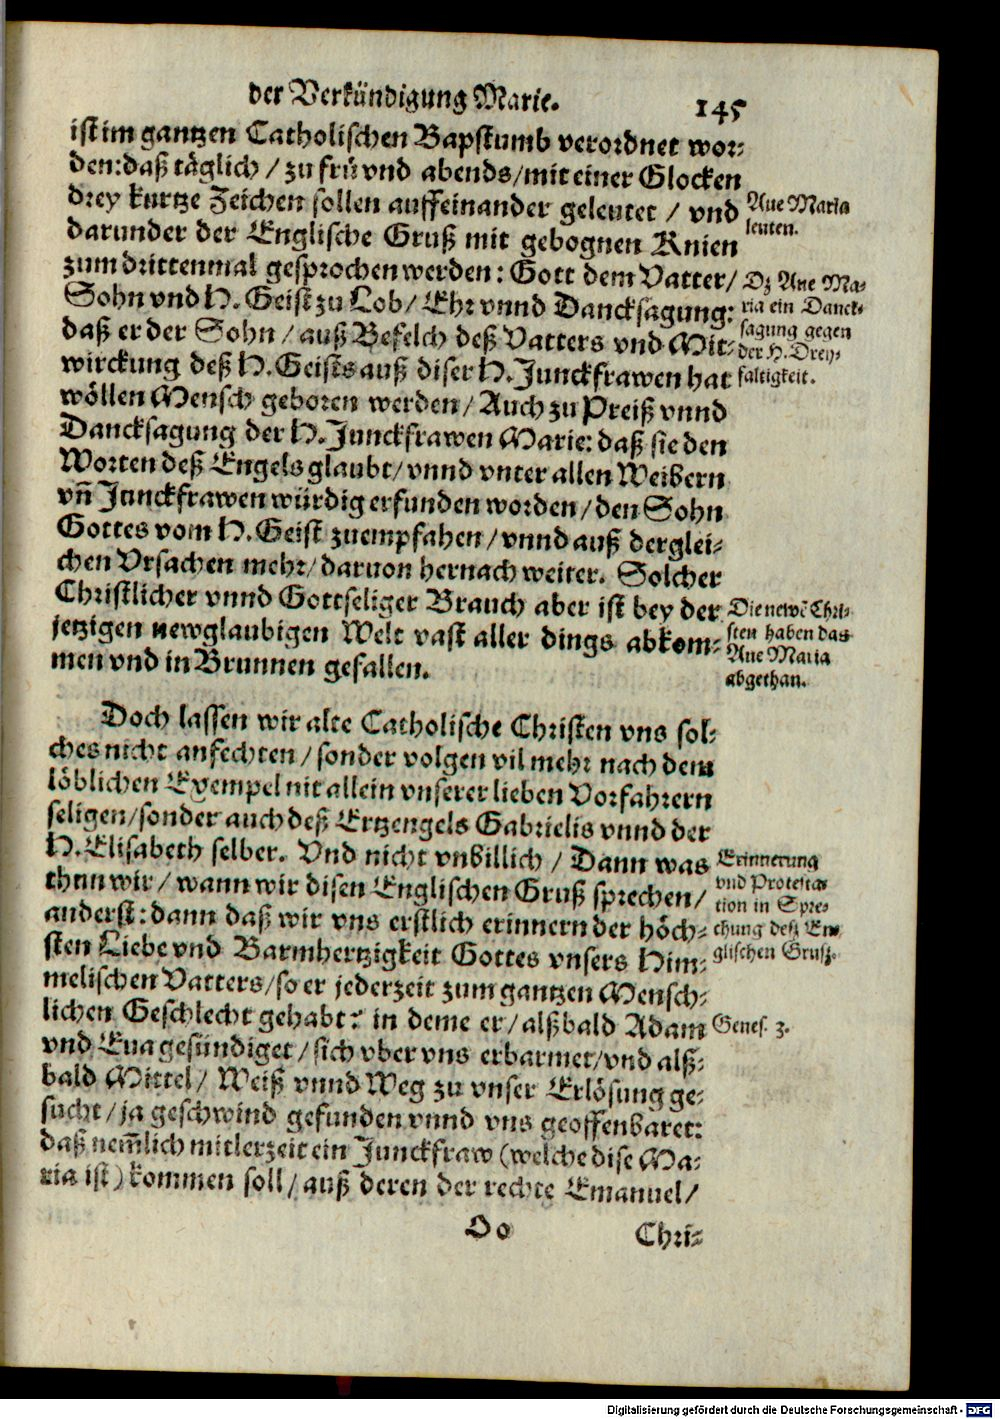 der Verkündigung Marie.
145
ist im gantzen Catholischen Bapstumb verordnet wor-
den: daß täglich / zu frü vnd abends / mit einer Glocken
drey kurtze Zeichen sollen auffeinander geleutet / vnd
darunder der Englische Gruß mit gebognen Knien
zum drittenmal gesprochen werden: Gott dem Vatter /
Sohn vnd H. Geist zu Lob / Ehr vnnd Dancksagung:
daß er der Sohn / auß Befelch deß Vatters vnd Mit-
wirckung deß H. Geists auß diser H. Junckfrawen hat
wöllen Mensch geboren werden / Auch zu Preiß vnnd
Dancksagung der H. Junckfrawen Marie: daß sie den
Worten deß Engels glaubt / vnnd vnter allen Weibern
vñ Junckfrawen würdig erfunden worden / den Sohn
Gottes vom H. Geist zuempfahen / vnnd auß derglei-
chen Vrsachen mehr / daruon hernach weiter. Solcher
Christlicher vnnd Gottseliger Brauch aber ist bey der
jetzigen newglaubigen Welt vast aller dings abkom-
men vnd in Brunnen gefallen.
Aue Maria
leuten.
Dz Aue Ma-
ria ein Danck-
sagung gegen
der H. Drey-
faltigkeit.
Die newẽ Chri-
sten haben das
Aue Maria
abgethan.
Doch lassen wir alte Catholische Christen vns sol-
ches nicht anfechten / sonder volgen vil mehr nach dem
löblichen Exempel nit allein vnserer lieben Vorfahrern
seligen / sonder auch deß Ertzengels Gabrielis vnnd der
H. Elisabeth selber. Vnd nicht vnbillich / Dann was
thun wir / wann wir disen Englischen Gruß sprechen /
anderst: dann daß wir vns erstlich erinnern der höch-
sten Liebe vnd Barmhertzigkeit Gottes vnsers Him-
melischen Vatters / so er jederzeit zum gantzen Mensch-
lichen Geschlecht gehabt: in deme er / alßbald Adam
vnd Eua gesündiget / sich vber vns erbarmet / vnd alß-
bald Mittel / Weiß vnnd Weg zu vnser Erlösung ge-
sucht / ja geschwind gefunden vnnd vns geoffenbaret:
daß nem̃lich mitlerzeit ein Junckfraw (welche dise Ma-
ria ist) kommen soll / auß deren der rechte Emanuel /
Erinnerung
vnd Protesta-
tion in Spre-
chung deß En-
glischen Gruß.
Genes. 3.
Oo
Chri-
Digitalisierung gefördert durch die Deutsche Forschungsgemeinschaft - DFG